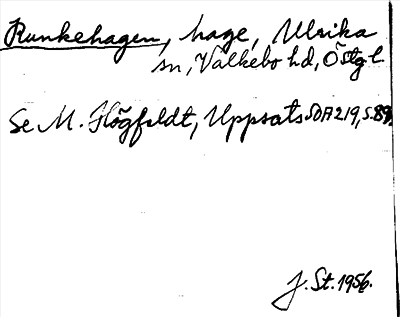 Runkehagen, hage, Ulrika
sn, Valkebo hd, Östgl
Se M. Högfeldt, Uppsats SOFI 219, s. 89.
J. St. 1956.